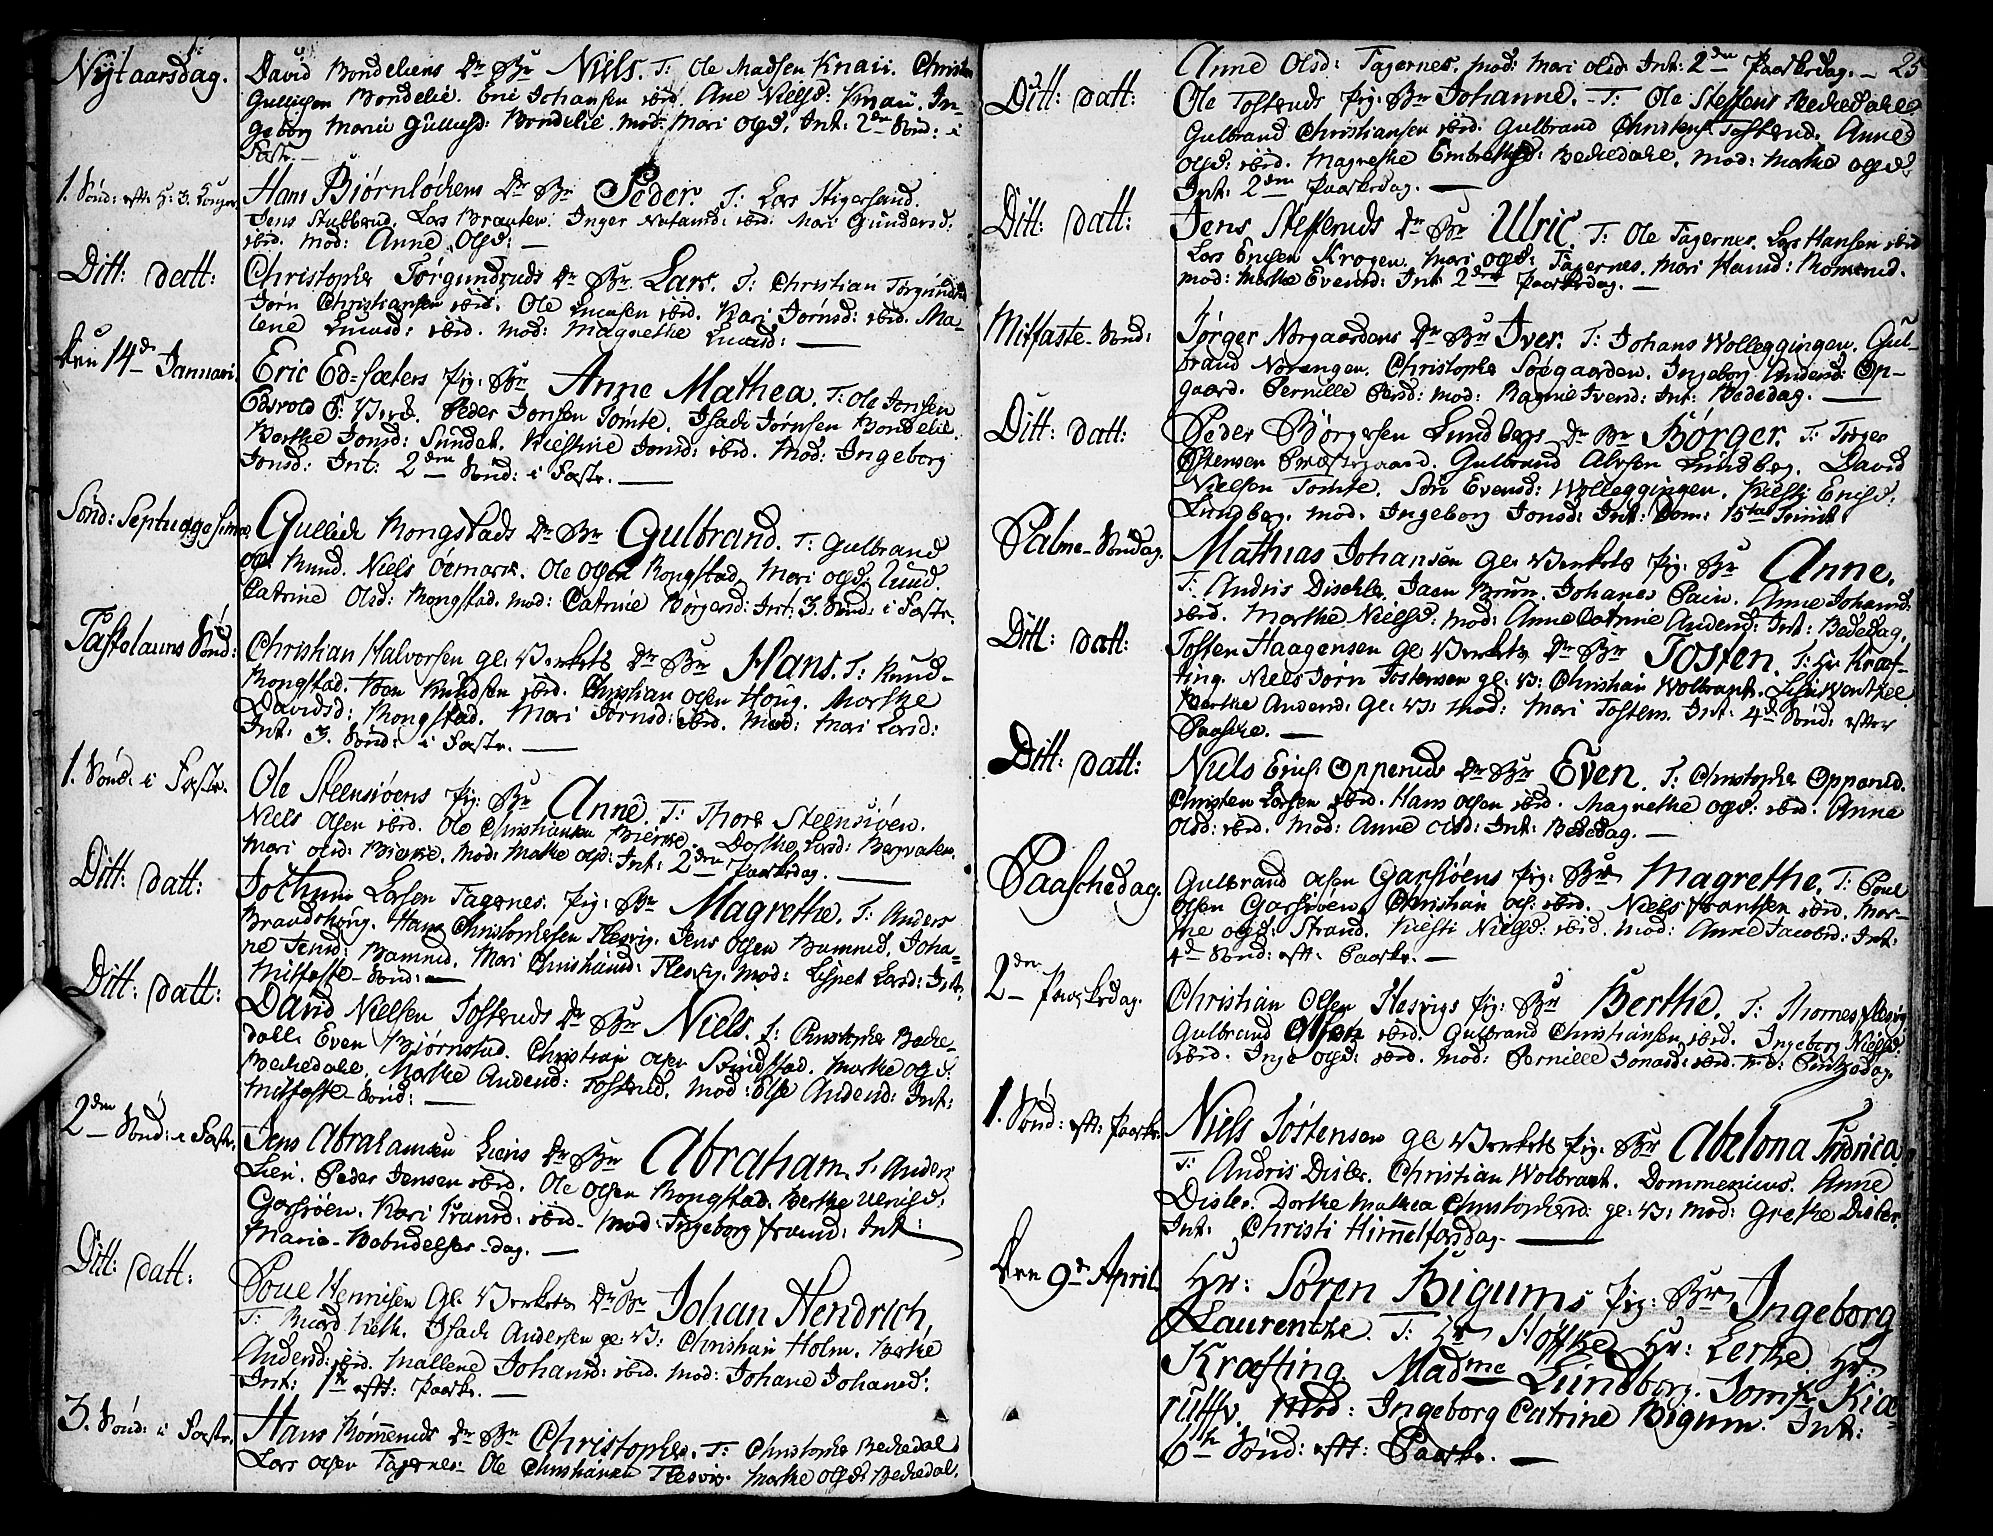 Nytaarsdag.
David Bondeliens Dr Br Niels. T: Ole Madsen Knaii. Christen
Gullichsen Bondelie. Eric Johansen ibid. Ane Nielsd: Knaii. In-
geborg Marie Gulliksd: Bondelie. Mod: Mari Olsd. Int: 2den Sönd: i
Faste.
1. Sönd: eft: H: 3. Konger.
Hans Biørnløchens Dr Br Peder. T: Lars Stigersand.
Jens Stubberud. Lars Braaten. Inger Maria Gundersd:
ibid. Mod: Anne Olsd: —
Ditt: datt:
Christopher Tørgundruds Dr Br Lars. T: Christian Tørgundrud
Jørn Christiansen ibid. Ole Lucasen ibid. Kari Jørnsd: ibid. Ma-
lene Lucasd: ibid. Mod: Magrethe Lucasd: —
Den 14de Januari.
Eric Ed-sæters Pig: Br Anne Mathea. T: Ole Jonsen
Edsvold P: Peder Jonsen Tomte. Isach Jørnsen Bondelie.
Berthe Jonsd: Sundet. Kiestine Jonsd: ibid. Mod: Ingeborg
Jonsd: Int: 2den Sönd: i Faste. —
Sönd: Septuagesima
Gullich Rongstads Dr Br Gulbrand. T: Gulbrand
Niels Ole Olsen Rongstad. Mari Olsd: Lund.
Catrine Olsd: Rongstad. Mod: Catrine Børgersd: Int: 3. Sönd: i Faste.
Fastelauns Sönd:
Christian Halvorsen Gl: Verkets Dr Br Hans. T: Knud
Rongstad. Knudsen ibid. Christian Olsen Houg. Marthe
Davidsd: Rongstad. Mari Jørnsd: ibid. Mod: Mari Larsd:
Int: 3. Sönd: i Faste. —
1. Sönd: i Faste.
Ole Steensiøens Pig: Br Anne. T: Thore Steensiøen.
Niels Olsen ibid. Ole Christiansen Bierke. Dorthe Larsd: Bergvaten.
Mari Olsd: Bierke. Mod: Mathe Olsd: Int: 2den Paaskedag. —
Ditt: datt:
Jochum Larsen Tagernes. Pig: Br Magrethe. T: Anders
Brandskoug. Hans Christophersen Flesvig. Jens Olsen Bamrud. Joha-
ne Jensd: Bamrud. Mari Christiansd: Flesvig. Mod: Lispet Larsd: Int:
Mitfaste-Sönd: —
Ditt: datt:
David Nielsen Tosteruds Dr Br Niels. T: Christopher Becke-
dall. Even Biørnstad. Christian Olsen Svindstad. Marthe Olsd:
Beckedale. Marthe Andersd: Tosterud. Mod: Else Andersd: Int:
Mitfaste-Sönd: —
2den Sönd: i Faste.
Jens Abrahamsen Liens Dr Br Abraham. T: Anders
Lien. Peder Jensen ibid. Ole Olsen Rongstad. Berthe Ulrichsd:
Garsiøen. Kari Fransd: ibid. Mod: Ingeborg Fransd: Int:
Mariæ-Bebudelses-dag. —
Ditt: datt:
Poul Henrichsen Gl: Verkets Dr Br Johan Hendrich,
T: Isach Andersen gl: V: Christian Holm. Berthe
Andersd: ibid. Mallene Johansd: ibid. Mod: Johane Johansd:
Int: 1te eft: Paaske. —
3. Sönd: i Faste.
Hans Rømmeruds Dr Br Christopher. T: Christopher Beckedal
Lars Olsen Tagernes. Ole Christiansen Flesvig. Marthe Olsd: Beckedal.
25
Anne Olsd: Tagernes. Mod: Mari Olsd: Int: 2den Paaskedag. —
Ditt: datt:
Ole Tosteruds Pig: Br Johanne. T: Ole Steffens Beckedale
Gulbrand Christiansen ibid. Gulbrand Christens. Tosterud. Anne
Olsd: ibid. Magrethe Embretsd: Beckedale. Mod: Marthe Olsd:
Int: 2den Paaskedag. —
Ditt: datt:
Jens Stefferuds Dr Br Ulric. T: Ole Tagernes. Lars Hansen ibid
Lars Ericsen Krogen. Mari Olsd: Tagernes. Mari Hansd: Rømerud.
Mod: Marthe Evensd: Int: 2den Paaskedag. —
Mitfaste-Sönd:
Jørger Norgaardens Dr Br Iver. T: Johans Wolleggingen. Gul-
brand Norengen. Christopher Søegaarden. Ingeborg Andersd: Op-
gaard. Pernille Persd: Mod: Ragnie Iversd: Int: Bededag. —
Ditt: datt:
Peder Børgersen Lundbergs Dr Br Børger. T: Jørger
Østensen Præstegaard. Gulbrand Alvsen Lundberg. David
Nielsen Tomte. Siri Evensd: Wolleggingen. Kiesti Ericsd:
Lundberg. Mod: Ingeborg Jonsd: Int: Dom: 15ta Trinit:
Palme-Søndag.
Mathias Johansen Gl: Verkets Pig: Br Anne.
T: Andris Dischler. Jaen Brun. Johanes Pain. Anne Johansd:
ibid. Marthe Nielsd: Mod: Anne Catrine Andersd: Int: Bededag.
Ditt: datt:
Tosten Haagensen Gl: Verkets Dr Br Tosten. T: Hr Kræf-
ting. Niels Jørn Tostensen gl: V: Christian Wolbrant. Lisa Wentzel
Berthe Andersd: Gl: V: Mod: Mari Tostens. Int: 4de Sönd: efter
Paaske. —
Ditt: datt:
Niels Erichs: Opperuds Dr Br Even. T: Christopher Opperud.
Christen Larsen ibid. Hans Olsen ibid. Magrethe Olsd: ibid. Anne
Olsd: ibid. Mod: Anne Olsd: Int: Bededag. —
Paaschedag.
Gulbrand Olsen Garsiøens Pig: Br Magrethe. T: Poul
Olsen Garsiøen. Christian Ols: ibid. Niels Frantsen ibid. Mar-
the Olsd: Strand. Kiesti Nielsd: ibid. Mod: Anne Jacobsd: Int:
4de Sönd: eft: Paaske. —
2den Paaskedag.
Christian Olsen Flesvigs Pig: Br Berthe. T: Thomes Flesvig
Gulbrand Olsen ibid. Gulbrand Christiansen ibid. Ingeborg Nielsd:
ibid. Inge Olsd: ibid. Mod: Pernille Jonasd: ibid. Int: Pintzedag.
1. Sönd: eft: Paaske.
Niels Tostensen Gl: Verkets Pig: Br Abelona Fredrica
T: Andris Disler. Christian Wolbrant. Dommenicus. Anne
Disler. Dorthe Mathea Christophersd: gl: V: Mod: Grethe Disler.
Int: Christi Himmelfarsdag. —
Den 9de April.
Hr: Søren Bigums Pig: Br Ingeborg
Laurentze. T: Hr Høffke, Hr: Lerke. Hr:
Kræfting. Madme Lundberg. Jomfr Kiæ-
rulffv. Mod: Ingeborg Catrine Bigum. Int:
6te Sönd: eft: Paaske. —